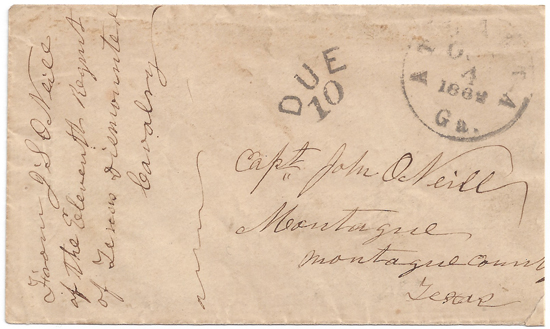 From J S O'Neill
of the Eleventh Regmt
of Texas Dismounted
Cavalry
DUE
10
ATLANTA
4
1862
Ga.
Capt. John O'Neill
Montague
Montague county
Texas